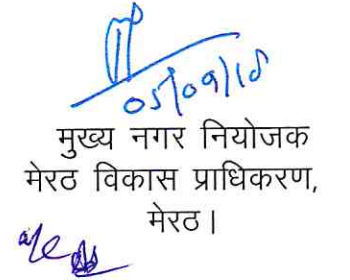 05/09/18
मुख्य नगर नियोजक
मेरठ विकास प्राधिकरण,
मेरठ।